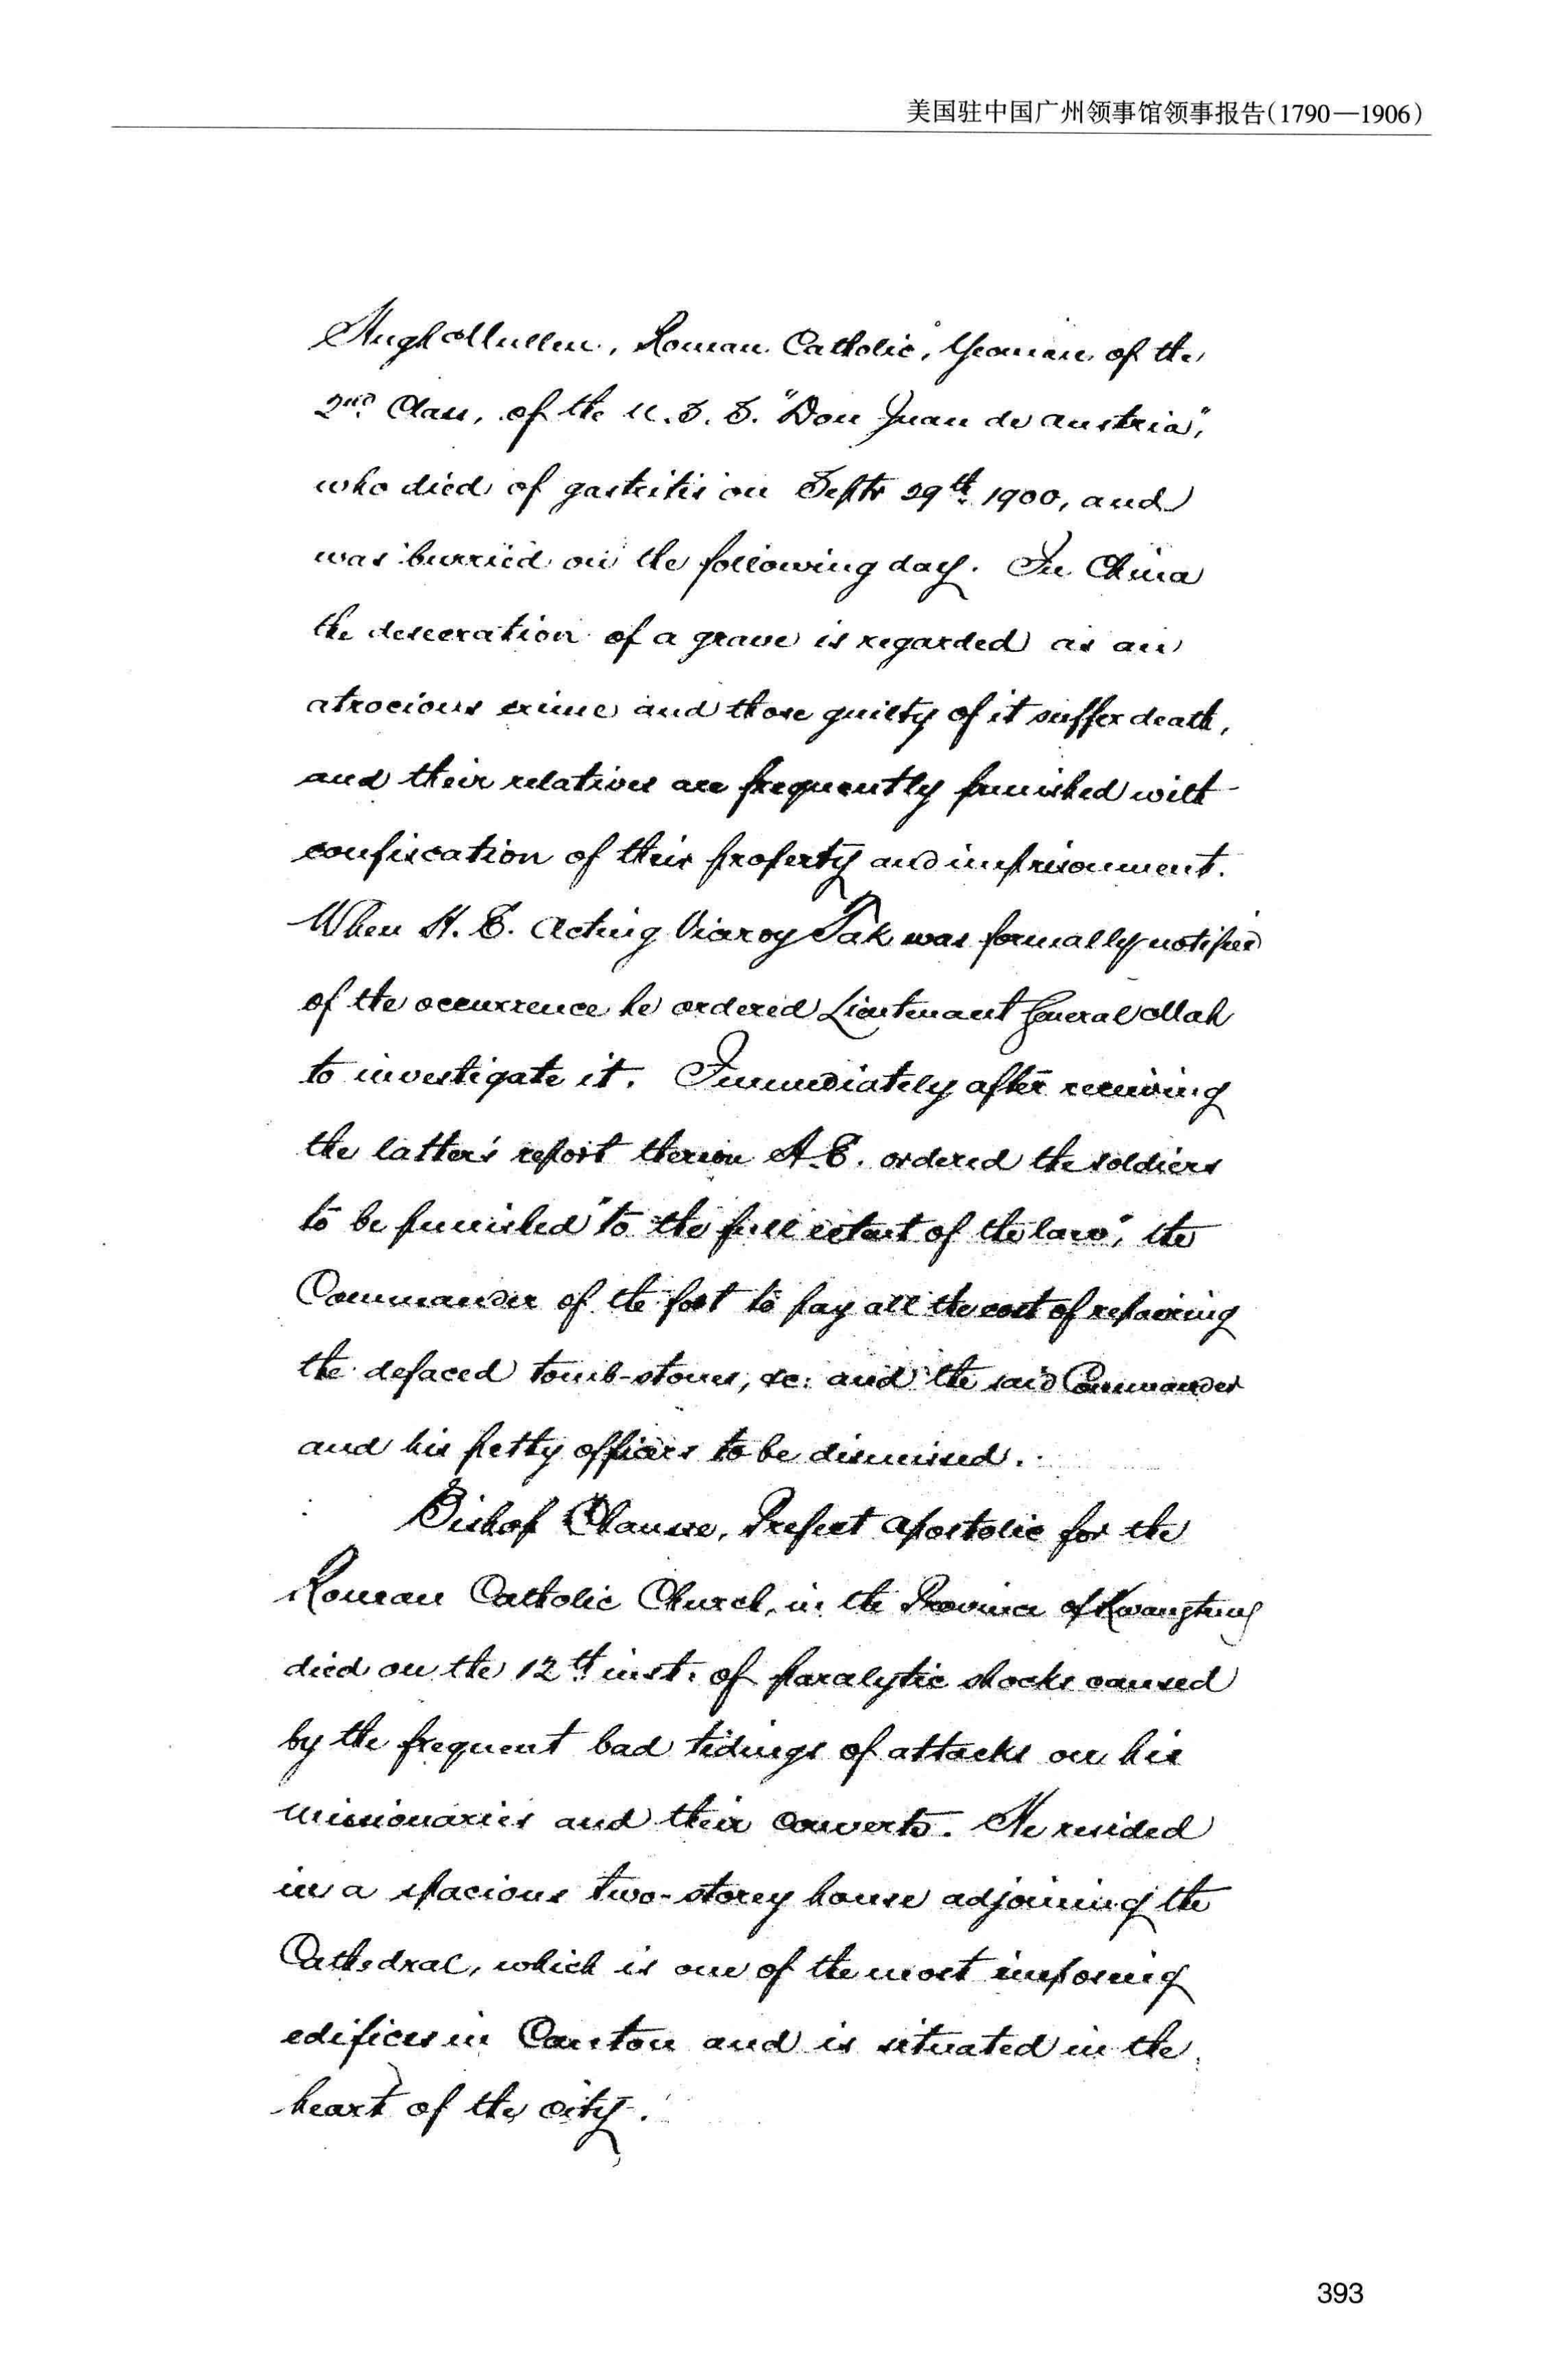 美国驻中国广州领事馆领事报告(1790—1906)
Hugh Mullen, Roman Catholic", Yeoman of the
2nd Class, of the U.S.S. "Don Juan de Austria",
who died of gastritis on Septr 29th 1900, and
was burried on the following day. In China
the desecration of a grave is regarded as an
atrocious crime and those guilty of it suffer death,
and their relatives are frequently punished with
confiscation of their property and imprisonment.
When H.E. Acting Viceroy Tak was formally notified
of the occurrence he ordered Lieutenant General Mah
to investigate it. Immediately after receiving
the latter's report thereon H.E. ordered the soldiers
to be punished "to the full extent of the law", the
Commander of the fort to pay all the cost of repairing
the defaced tomb-stones, &c: and the said Commander
and his petty officers to be dismissed.
Bishop Chausse, Prefect Apostolic for the
Roman Catholic Church, in the Province of Kwangtung
died on the 12th inst. of paralytic shocks caused
by the frequent bad tidings of attacks on his
missionaries and their converts. He resided
in a spacious two-storey house adjoining the
Cathedral, which is one of the most imposing
edifices in Canton and is situated in the
heart of the city.
393